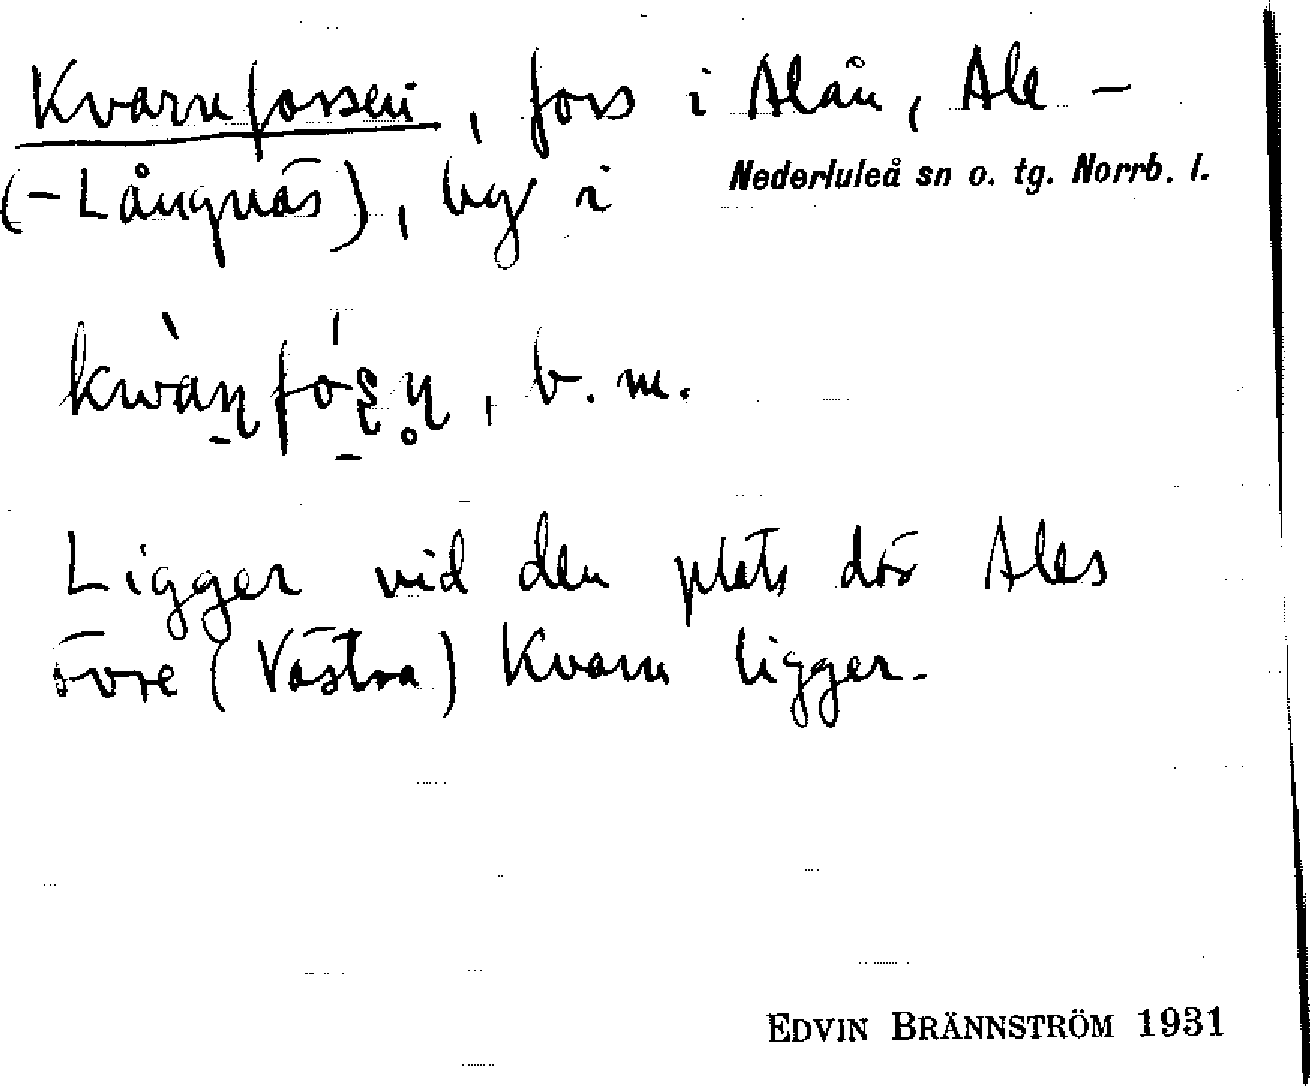 Kvarnforsen, fors i Alån, Ale-
(-Långnäs), by i Nederluleå sn o. tg. Norrb. l.
kwàn̠fó̠s̠n̥, b. m.
Ligger vid den plats där Ales
övre (Västra) Kvarn ligger.
EDVIN BRÄNNSTRÖM 1931